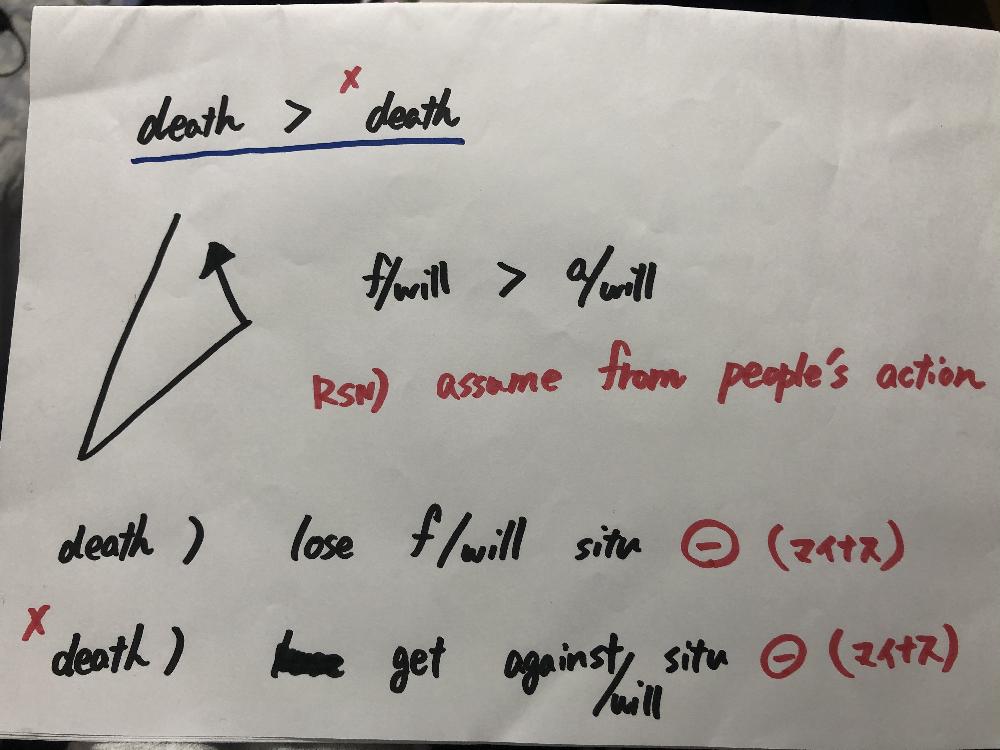 death > x death
f/will > a/will
RSN) assume from people's action
death ) lose f/will situ ⊖ (マイナス)
x death ) get against/will situ ⊖ (マイナス)